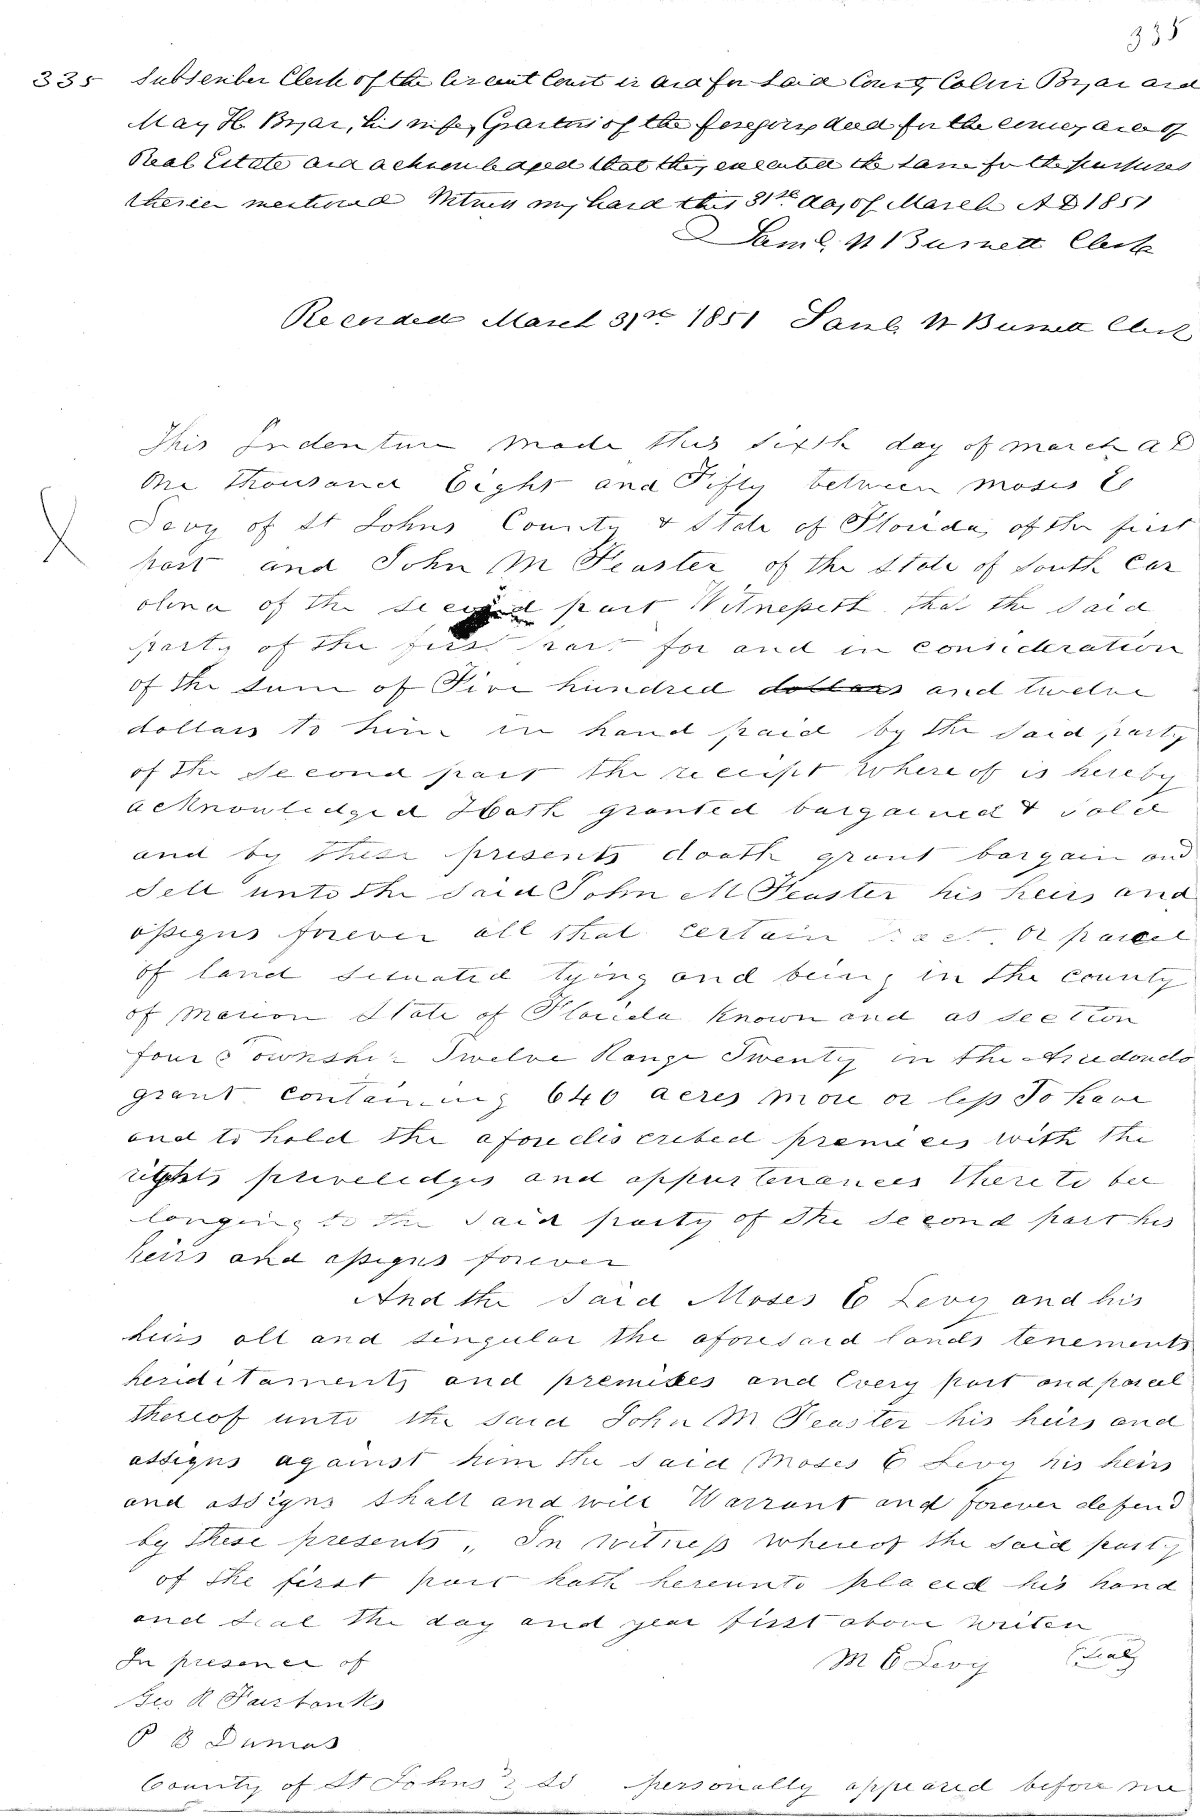 335
335 Subscriber Clerk of the Circuit Court in and for Said County Calvin Bryan and
May H Bryan, his wife, Grantors of the foregoing deed for the conveyance of
Real Estate and acknowledged that they executed the same for the purposes
therein mentioned Witness my hand this 31st day of March A D 1851
Saml. W Burnett Clerk
Recorded March 31st 1851 Saml W Burnett Clerk
This Indenture made this sixth day of march A D
One thousand Eight and Fifty between Moses E
Levy of St Johns County & State of Florida, of the first
part and John M Feaster of the State of South Car
olina of the second part Witnesseth that the said
party of the first part for and in consideration
of the sum of Five hundred dollars and twelve
dollars to him in hand paid by the said party
of the second part the receipt whereof is hereby
acknowledged Hath granted bargained & sold
and by these presents doath grant bargain and
Sell unto the said John M Feaster his heirs and
assigns forever all that certain tract or parcel
of land situated lying and being in the county
of Marion State of Florida Known and as section
four Township Twelve Range Twenty in the Arredondo
grant containing 640 acres more or less To have
and to hold the aforediscribed premices with the
rights priveledges and appurtenances there to bee
longing to the said party of the second part his
heirs and assigns forever
And the said Moses E Levy and his
heirs all and singular the aforesaid lands tenements
heriditaments and premises and Every part and parcel
thereof unto the said John M Feaster his heirs and
assigns against him the said Moses E Levy his heirs
and assigns shall and will Warrant and forever defend
by these presents ,, In Witness whereof the said party
of the first part hath hereunto placed his hand
and seal the day and year first above writen
In presence of M E Levy (Seal)
Geo R Fairbanks
P B Dumas
County of St Johns } SS personally appeared before me